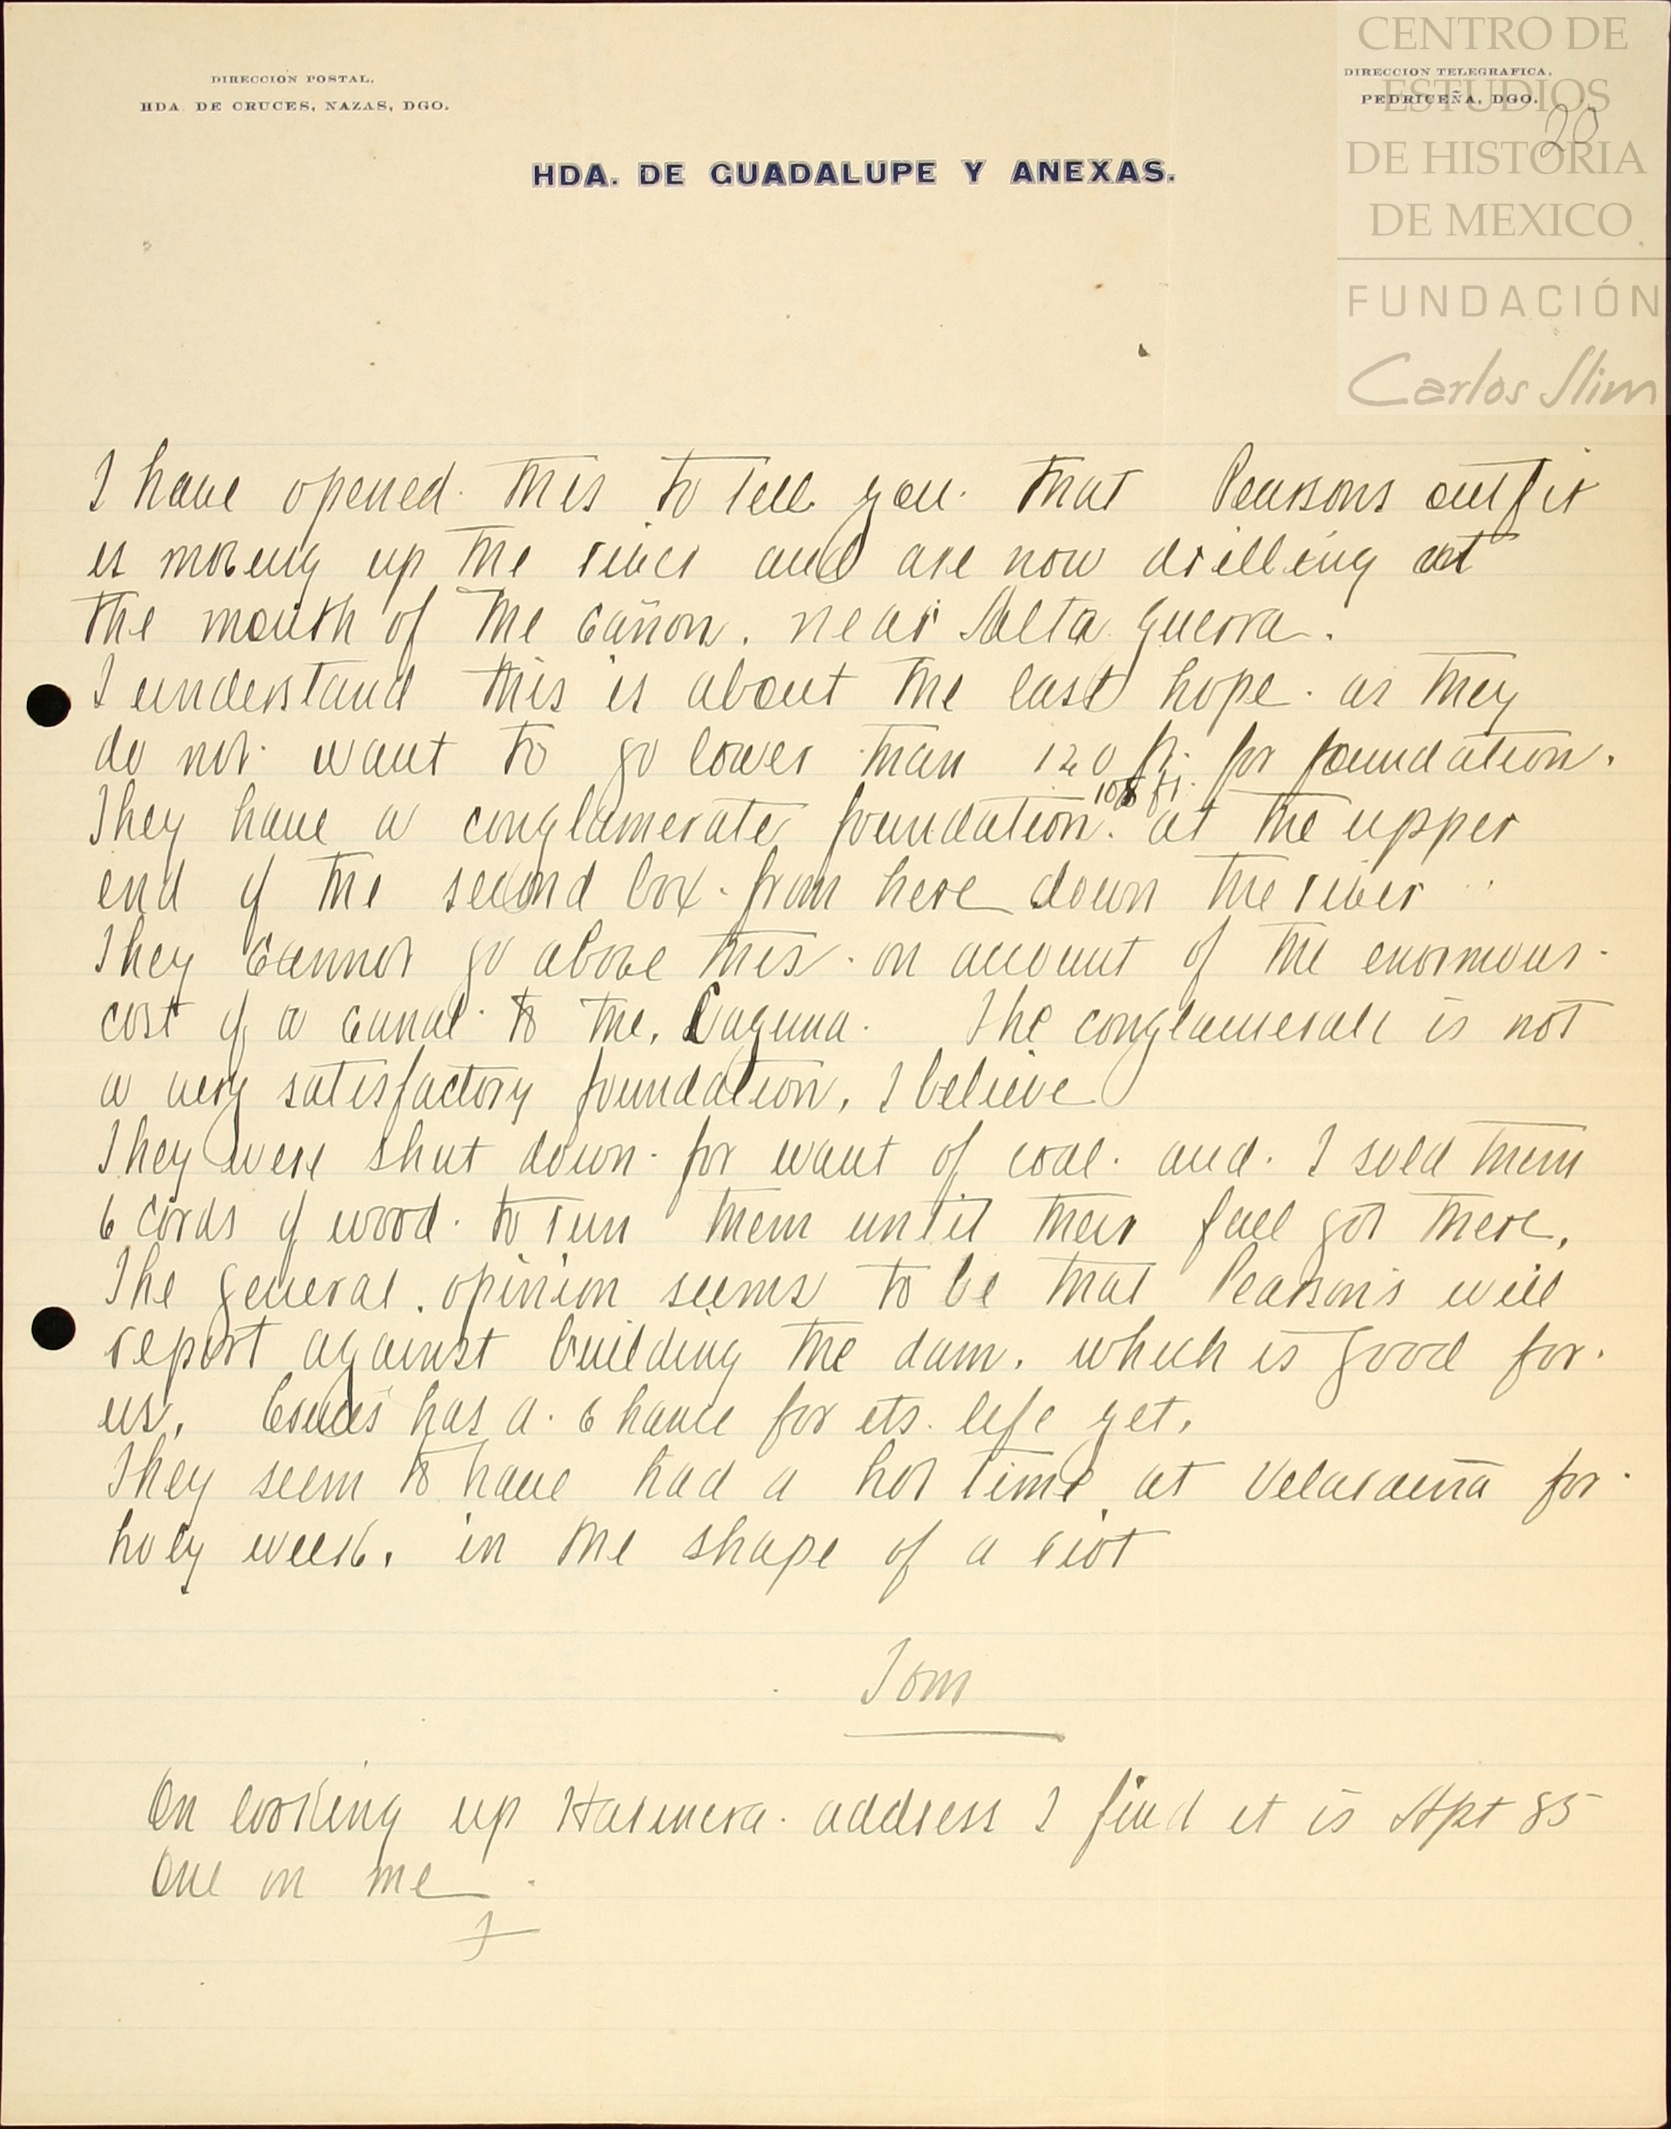 DIRECCIÓN POSTAL.
HDA. DE CRUCES, NAZAS, DGO.
DIRECCION TELEGRAFICA.
PEDRICEÑA, DGO.
20
CENTRO DE
ESTUDIOS
DE HISTORIA
DE MEXICO
FUNDACIÓN
Carlos Slim
HDA. DE GUADALUPE Y ANEXAS.
I have opened this to tell you that Pearsons outfit
is moving up the river and are now drilling at
the mouth of the cañon. near Salta Guerra.
I understand this is about the last hope. as they
do not want to go lower than 120 ft. for foundation.
They have a conglamerate foundation. 108 ft. at the upper
end of the second box from here down the river
They cannot go above this on account of the enormous
cost of a canal to the Laguna. The conglamerate is not
a very satisfactory foundation, I believe
They were shut down for want of coal. and I sold them
6 cords of wood to run them until their fuel got there.
The general opinion seems to be that Pearsons will
report against building the dam. which is good for
us. Cruces has a chance for its life yet.
They seem to have had a hot time at Velardeña for
holy week, in the shape of a riot
Tom
On looking up address I find it is Apt 85
One on me
T